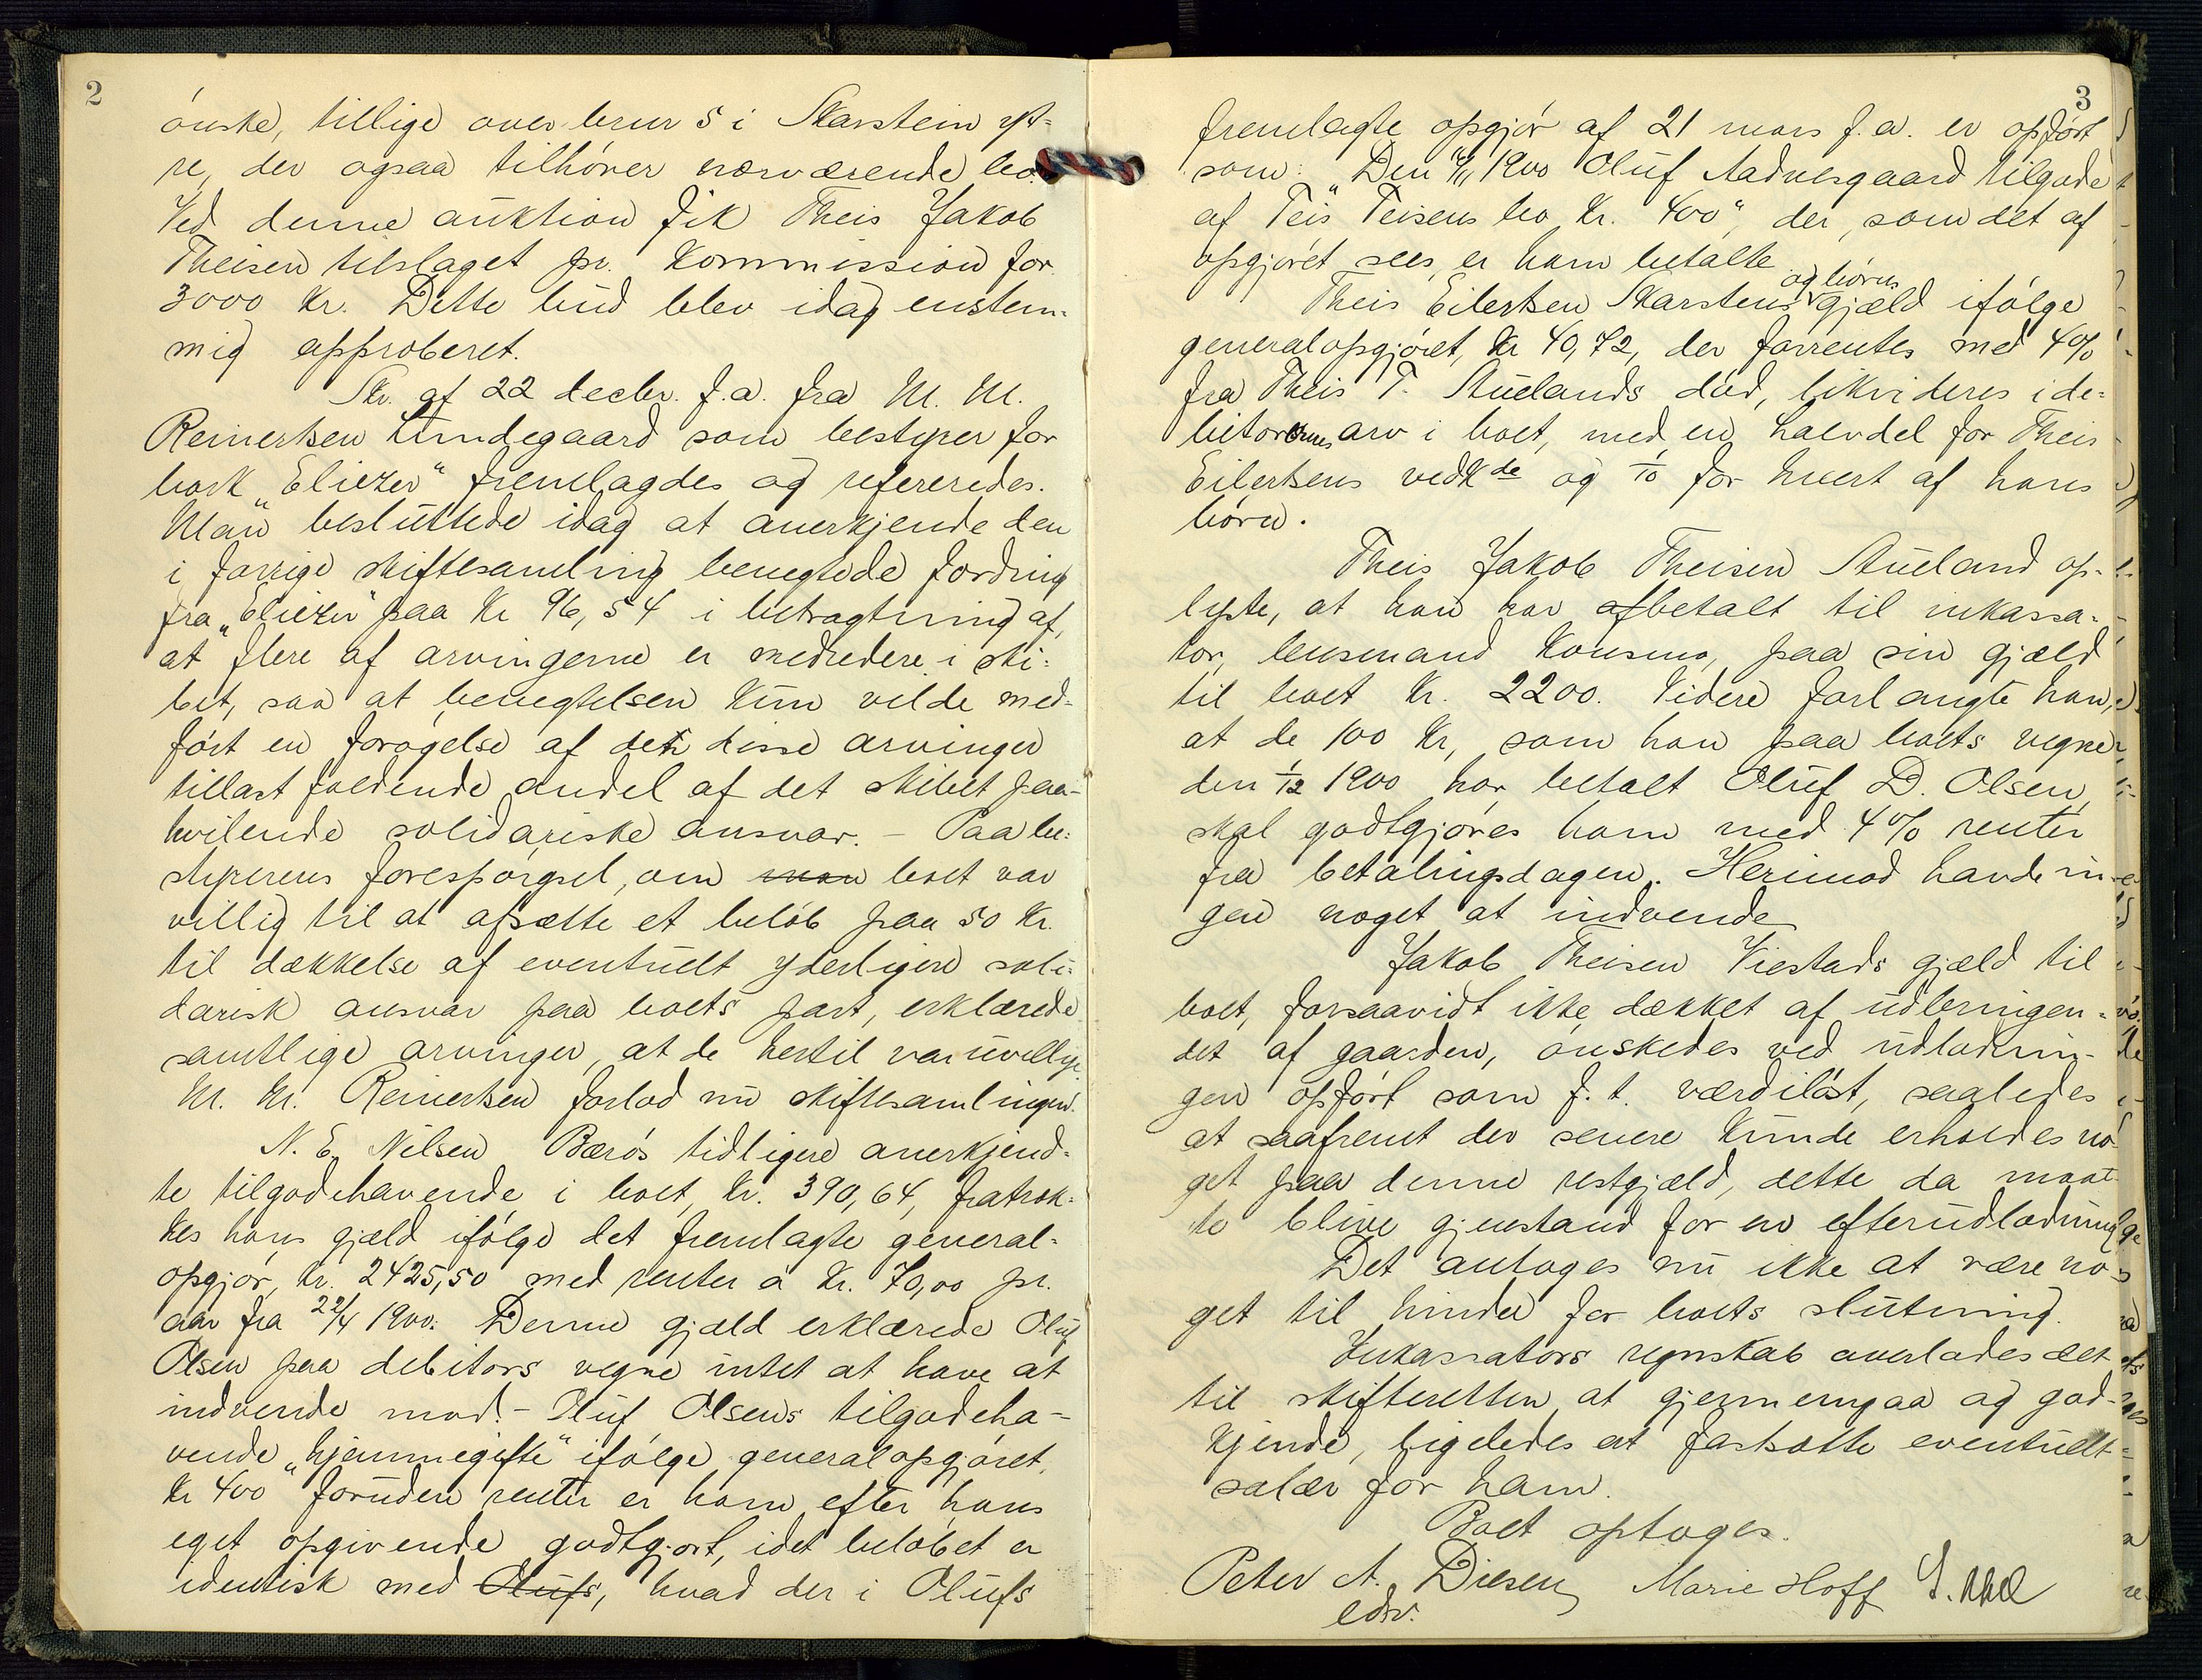 2
ønske, tillige over brur 5 i Skarstein yt-
re, der ogsaa tilhører nærværende bo.
Ved denne auktion fik Theis Jakob
Theisen tilslaget pr. Kommission for
3000 kr. Dette bud blev idag enstem-
mig approberet.
Skr. af 22 decbr. f.a. fra M. M.
Reinertsen Lundegaard som bestyrer for
bark "Eliezer" fremlagdes og refereredes.
Man besluttede idag at anerkjende den
i forrige skiftesamling benegtede fordring
fra "Eliezer" paa kr 96,54 i betragtning af,
at flere af arvingerne er medredere i ski-
bet, saa at benegtelsen kun vilde med-
ført en forøgelse af den disse arvinger
tillast faldende andel af det skibet paa-
hvilende solidariske ansvar. - Paa be-
styrerens forespørgsel, om man boet var
villig til at afsætte et beløb paa 50 kr.
til dækkelse af eventuelt yderligere soli-
darisk ansvar paa boets part, erklærede
samtlige arvinger, at de hertil var uvillige.
M. M. Reinertsen forlod nu skiftesamlingen.
N. E. Nilsen Bærøs tidligere anerkjend-
te tilgodehavende i boet, kr. 390,64, fratræk-
kes hans gjæld ifølge det fremlagte general-
opgjør, kr. 2425,50 med renter a kr. 70,00 pr.
aar fra 22/4 1900. Denne gjæld erklærede Oluf
Olsen paa debitors vegne intet at have at
indvende mod. - Oluf Olsens tilgodeha-
vende "hjemmegifte" ifølge generalopgjøret,
kr 400 foruden renter er ham efter hans
eget opgivende godtgjort, idet beløbet er
identisk med Olufs, hvad der i Olufs
3
fremlagte opgjør af 21 mars f.a. er opført
som: "Den 4/11 1900 Oluf Aadnesgaard tilgode
af Teis Teisens bo kr. 400", der, som det af
opgjøret sees, er ham betalte
og børns
Theis Eilertsen Skarstens gjæld ifølge
generalopgjøret, kr 40,72, der forrentes med 4%
fra Theis T. Stuelands død, likvideres i de-
bitorernes arv i boet, med en halvdel for Theis
Eilertsens vedkde og 1/10 for hvert af hans
børn.
Theis Jakob Theisen Stueland op-
lyste, at han har afbetalt til inkassa-
tor, lensmand Konsmo, paa sin gjæld
til boet kr. 2200. Videre forlangte han,
at de 100 kr, som han paa boets vegne
den 1/12 1900 har betalt Oluf D. Olsen,
skal godtgjøres ham med 4% renter
fra betalingsdagen. Herimod havde in-
gen noget at indvende
Jakob Theisen Viestads gjæld til
boet, forsaavidt ikke dækket af udbringen-
det af gaarden, ønskedes ved udlodnin-
gen opført som f.t. værdiløst, saaledes
at saafremt der senere kunde erholdes no-
get paa denne restgjæld, dette da maat-
te blive gjenstand for en efterudlodning
Det antoges nu ikke at være no-
get til hinder for boets slutning.
Inkassators regnskab overlodes det
til skifteretten at gjennemgaa og god-
kjende, ligeledes at fastsætte eventuelt
salær for ham.
Boet optoges.
Peter A. Diesen Marie Hoff
edsv.